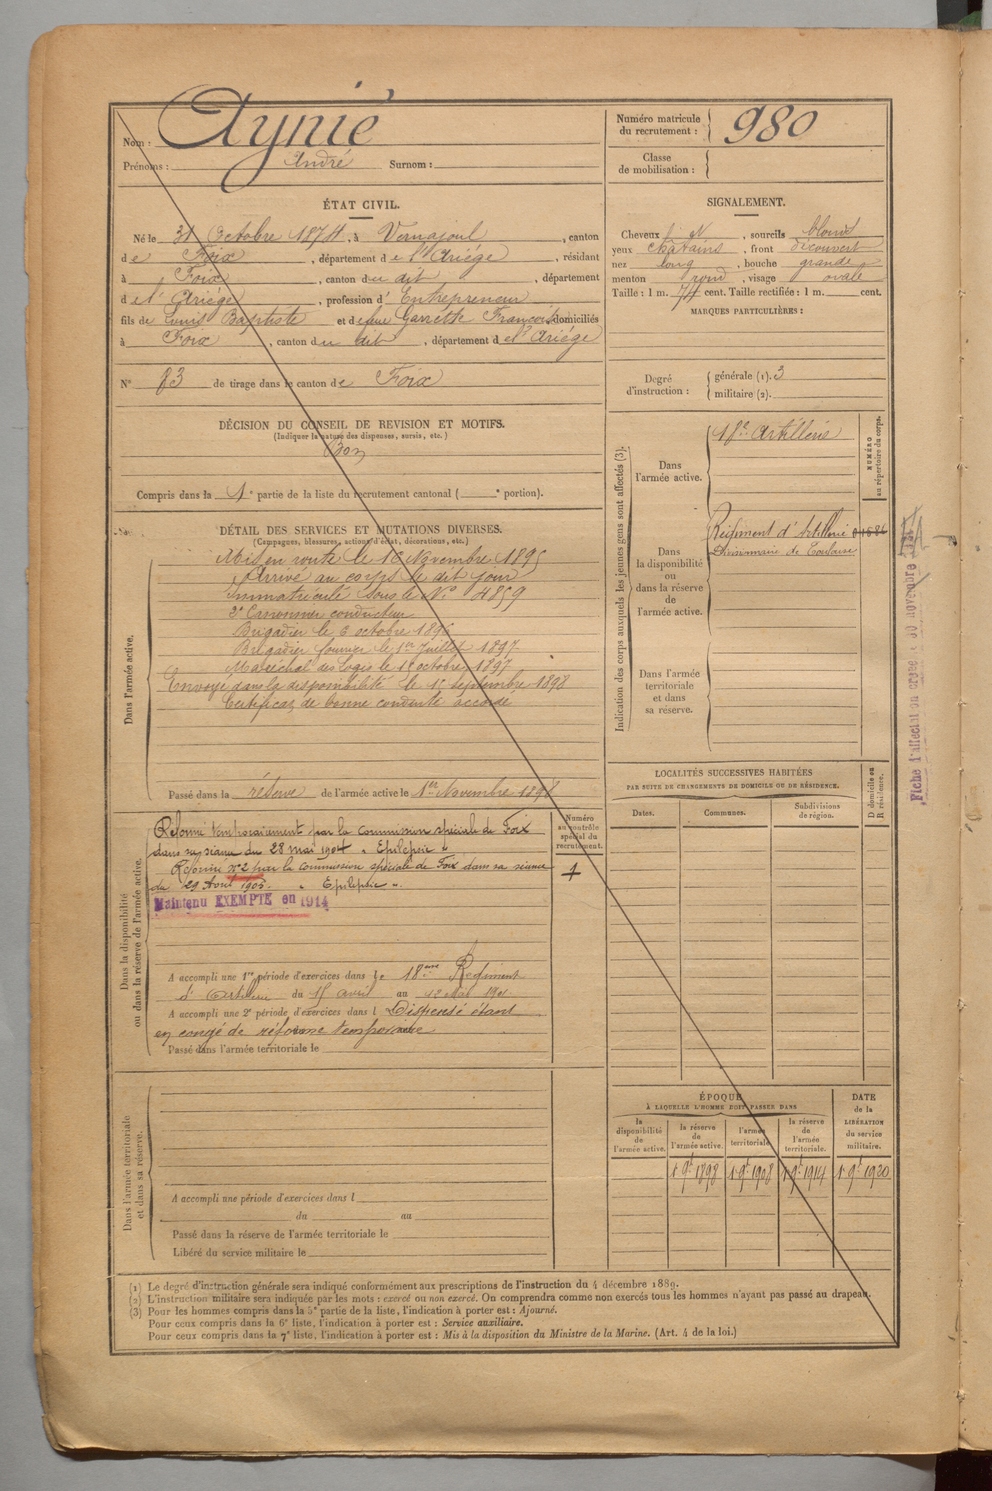 Nom : Aynié
Prénoms : André Surnom :
Numéro matricule
du recrutement : 980
Classe
de mobilisation :
ÉTAT CIVIL.
Né le 31 Octobre 1874, à Vernajoul, canton
de Foix, département de l'Ariége, résidant
à Foix, canton du dit, département
de l'Ariége, profession d'Entrepreneur
fils de Louis Baptiste et de feue Garrette Françoise domiciliés
à Foix, canton du dit, département de l'Ariége
N° 83 de tirage dans le canton de Foix
SIGNALEMENT.
Cheveux , sourcils blonds
yeux chatains, front découvert
nez long, bouche grande
menton rond, visage ovale
Taille : 1 m. 74 cent. Taille rectifiée : 1 m. cent.
MARQUES PARTICULIÈRES :
Degré
d'instruction :
générale (1). 3
militaire (2).
DÉCISION DU CONSEIL DE REVISION ET MOTIFS.
(Indiquer la nature des dispenses, sursis, etc.)
Bon
Compris dans la 1e partie de la liste du recrutement cantonal ( e portion).
DÉTAIL DES SERVICES ET MUTATIONS DIVERSES.
(Campagnes, blessures, actions d'éclat, décorations, etc.)
Dans l'armée active.
Mis en route le 16 Novembre 1895
Arrivé au corps le dit jour
Immatriculé sous le N° 4859
2e Canonnier conducteur
Brigadier le 3 octobre 1896
Brigadier fourrier le 1er Juillet 1897
Maréchal des logis le 12 octobre 1897
Envoyé dans la disponibilité le 15 septembre 1898
Certificat de bonne conduite accordé
Passé dans la réserve de l'armée active le 1er Novembre 1898
Dans la disponibilité
ou dans la réserve de l'armée active.
Réformé temporairement par la Commission spéciale de Foix
dans sa séance du 28 mai 1904 « Epilepsie »
Réformé n° 2 par la Commission spéciale de Foix dans sa séance
du 29 Avril 1905. « Epilepsie ».
Maintenu EXEMPTÉ en 1914
A accompli une 1re période d'exercices dans le 18ème Régiment
d'Artillerie du 15 avril au 12 mai 190
A accompli une 2e période d'exercices dans l Dispensé étant
en congé de réforme temporaire
Passé dans l'armée territoriale le
Numéro
au contrôle
spécial du
recrutement.
Dans l'armée territoriale
et dans sa réserve.
A accompli une période d'exercices dans l
du au
Passé dans la réserve de l'armée territoriale le
Libéré du service militaire le
Indication des corps auxquels les jeunes gens sont affectés (3).
Dans
l'armée active.
18e Artillerie
NUMÉRO
au répertoire du corps.
Dans
la disponibilité
ou
dans la réserve
de
l'armée active.
Régiment d'Artillerie
Divisionnaire de Toulouse
Dans l'armée
territoriale
et dans
sa réserve.
LOCALITÉS SUCCESSIVES HABITÉES
PAR SUITE DE CHANGEMENTS DE DOMICILE OU DE RÉSIDENCE.
Dates.
Communes.
Subdivisions
de région.
D domicile ou
R résidence.
ÉPOQUE
À LAQUELLE L'HOMME DOIT PASSER DANS
la
disponibilité
de
l'armée active.
la réserve
de
l'armée active.
l'armée
territoriale.
la réserve
de
l'armée
territoriale.
DATE
de la
LIBÉRATION
du service
militaire.
1 9bre 1898
1 9bre 1908
1 9bre 1914
1 9bre 1920
(1) Le degré d'instruction générale sera indiqué conformément aux prescriptions de l'instruction du 4 décembre 1889.
(2) L'instruction militaire sera indiquée par les mots : exercé ou non exercé. On comprendra comme non exercés tous les hommes n'ayant pas passé au drapeau.
(3) Pour les hommes compris dans la 5e partie de la liste, l'indication à porter est : Ajourné.
Pour ceux compris dans la 6e liste, l'indication à porter est : Service auxiliaire.
Pour ceux compris dans la 7e liste, l'indication à porter est : Mis à la disposition du Ministre de la Marine. (Art. 4 de la loi.)